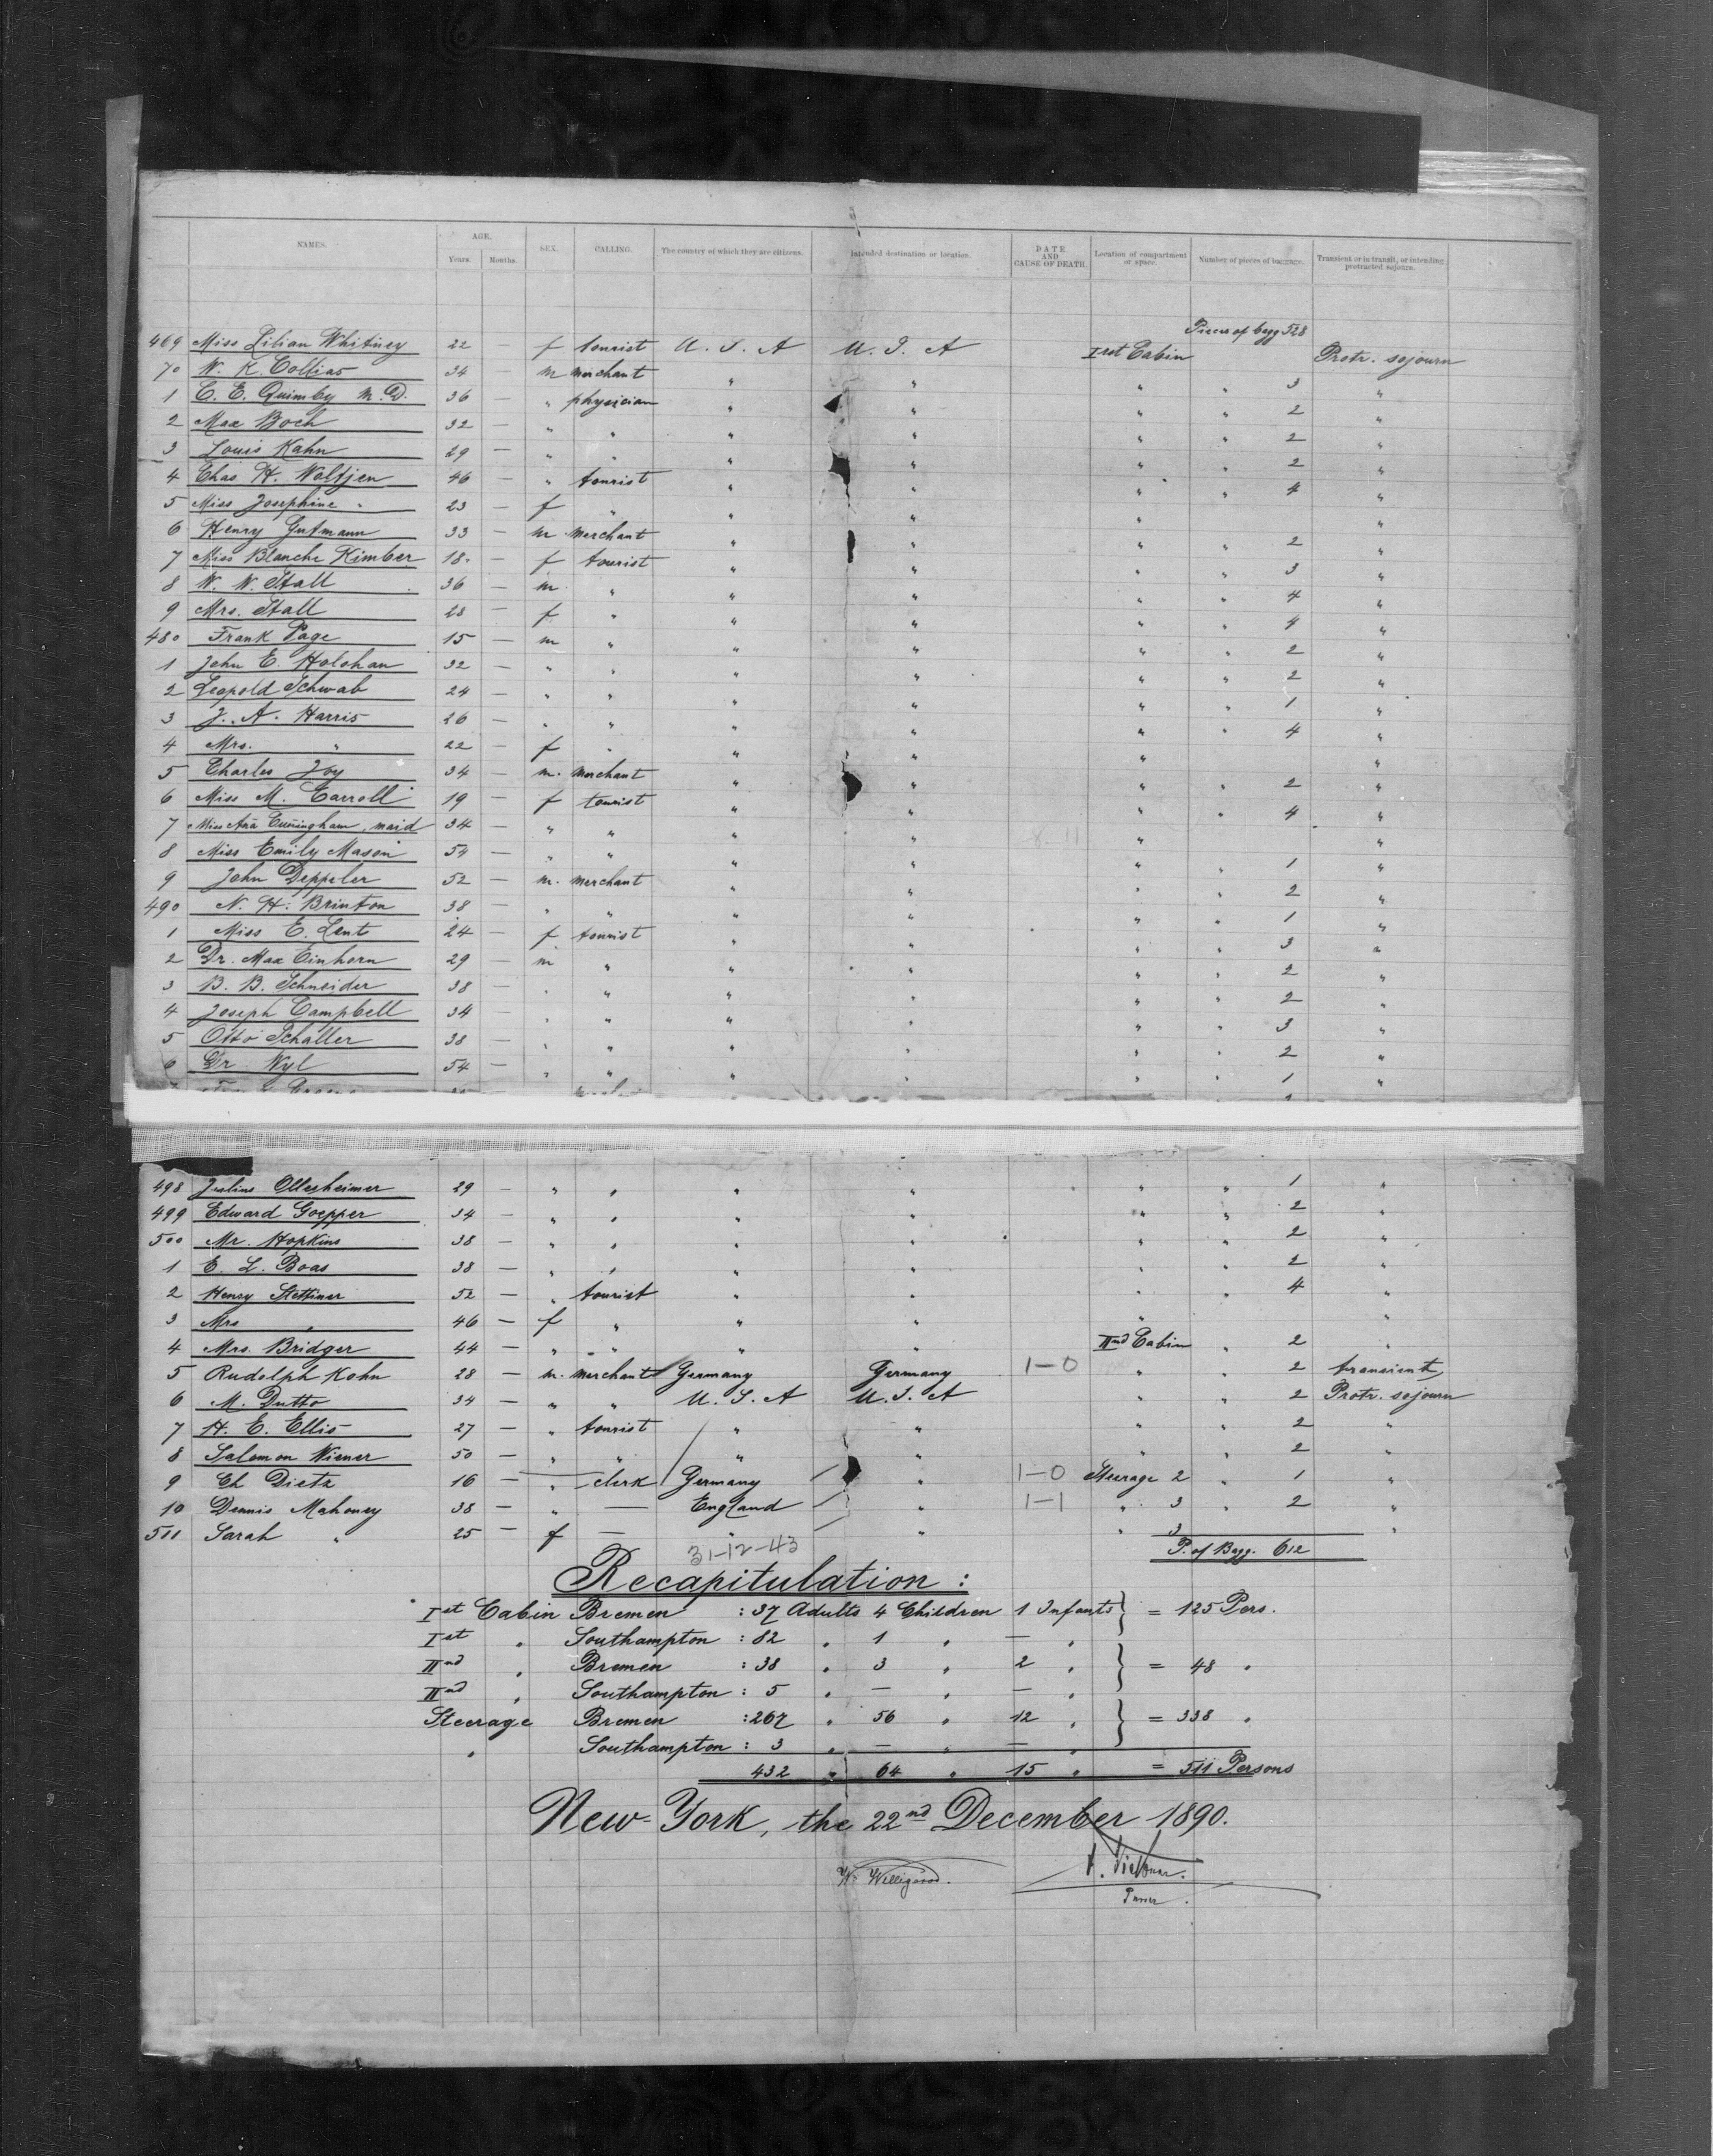 NAMES. AGE. Years. Months. SEX. CALLING. The country of which they are citizens. Intended destination or location. DATE AND CAUSE OF DEATH. Location of compartment or space. Number of pieces of baggage. Transient or in transit, or intending protracted sojourn.
Pieces of bagg 528
469 Miss Lilian Whitney 22 — f tourist U. S. A U. S. A Ist Cabin Protr. sojourn
70 W. K. Collins 34 — m merchant " " " " 3 "
1 C. E. Quimby M. D. 36 — " physician " " " " 2 "
2 Max Boch 32 — " " " " " " 2 "
3 Louis Kahn 29 — " " " " " " 2 "
4 Chas H. Woltjen 46 — " tourist " " " " 4 "
5 Miss Josephine " 23 — f " " " " "
6 Henry Gutmann 33 — m merchant " " " " 2 "
7 Miss Blanche Kimber 18 — f tourist " " " " 3 "
8 W. W. Stall 36 — m " " " " " 4 "
9 Mrs. Stall 28 — f " " " " " 4 "
480 Frank Page 15 — m " " " " " 2 "
1 John E. Holohan 32 — " " " " " " 2 "
2 Leopold Schwab 24 — " " " " " " 1 "
3 J. A. Harris 26 — " " " " " " 4 "
4 Mrs. " 22 — f " " " " "
5 Charles Joy 34 — m. merchant " " " " 2 "
6 Miss M. Carroll 19 — f tourist " " " " 4 "
7 Miss Ana Cuningham, maid 34 — " " " " " "
8 Miss Emily Mason 54 — " " " " " " 1 "
9 John Deppeler 52 — m. merchant " " " " 2 "
490 N. H. Brinton 38 — " " " " " " 1 "
1 Miss E. Lent 24 — f tourist " " " " 3 "
2 Dr. Max Einhorn 29 — m " " " " " 2 "
3 B. B. Schneider 38 — " " " " " " 2 "
4 Joseph Campbell 34 — " " " " " " 3 "
5 Otto Schaller 38 — " " " " " " 2 "
6 Dr. Wyl 54 — " " " " " " 1 "
498 Julius Ollesheimer 29 — " " " " " " 1 "
499 Edward Goepper 34 — " " " " " " 2 "
500 Mr. Hopkins 38 — " " " " " " 2 "
1 E. L. Boas 38 — " " " " " " 2 "
2 Henry Stettiner 52 — " tourist " " " " 4 "
3 Mrs " 46 — f " " " " "
4 Mrs. Bridger 44 — " " " " IInd Cabin " 2 "
5 Rudolph Kohn 28 — m. merchant Germany Germany 1-0 " " 2 transient
6 M. Dutto 34 — " " U. S. A U. S. A " " 2 Protr. sojourn
7 H. E. Ellis 27 — " tourist " " " " 2 "
8 Salomon Wiener 50 — " " " " " " 2 "
9 Ch Dietz 16 — " clerk Germany " 1-0 Steerage 2 " 1 "
10 Dennis Mahoney 38 — " — England " 1-1 " 3 " 2 "
511 Sarah " 25 — f — " " " 3 "
31-12-43 P. of Bagg. 612
Recapitulation :
Ist Cabin Bremen : 37 Adults 4 Children 1 Infants } = 125 Pers.
Ist " Southampton : 82 " 1 " — "
IInd " Bremen : 38 " 3 " 2 " } = 48 "
IInd " Southampton : 5 " — " — "
Steerage Bremen : 267 " 56 " 12 " } = 338 "
" Southampton : 3 " — " — "
432 " 64 " 15 " = 511 Persons
New-York, the 22nd December 1890.
W. Willigerod.
Purser.